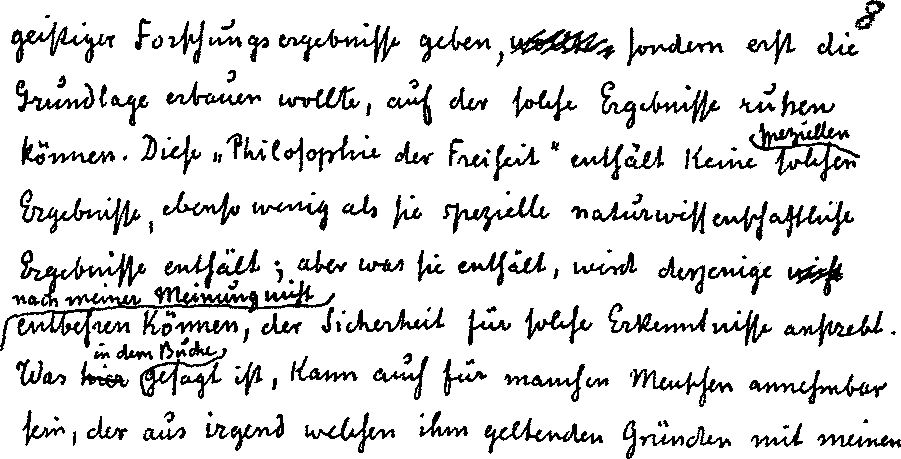 8
geistiger Forschungsergebnisse geben, sondern erst die
Grundlage erbauen wollte, auf der solche Ergebnisse ruhen
können. Diese „Philosophie der Freiheit“ enthält keine solchen
speziellen
Ergebnisse, ebenso wenig als sie spezielle naturwissenschaftliche
Ergebnisse enthält; aber was sie enthält, wird derjenige nicht
nach meiner Meinung nicht
entbehren können, der Sicherheit für solche Erkenntnisse anstrebt.
in dem Buche
Was hier gesagt ist, kann auch für manchen Menschen annehmbar
sein, der aus irgend welchen ihm geltenden Gründen mit meinen